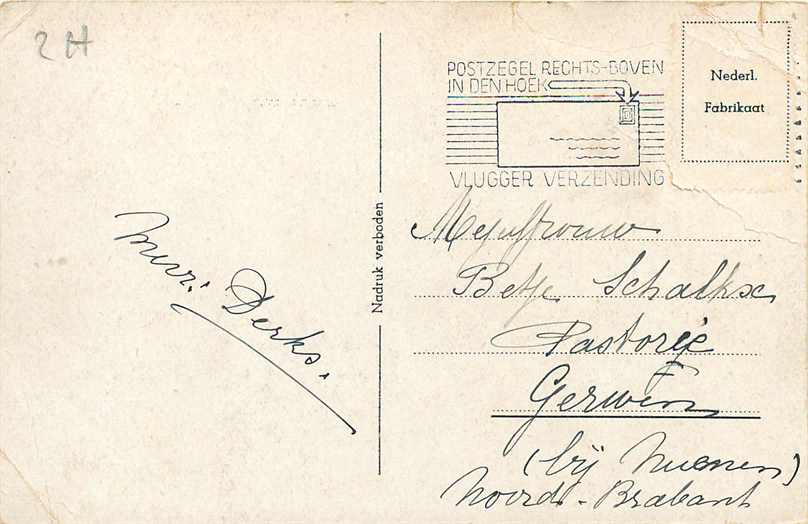 2H
POSTZEGEL RECHTS-BOVEN
IN DEN HOEK
VLUGGER VERZENDING
Nederl.
Fabrikaat
Nadruk verboden
Derks.
Mejuffrouw
Betje Schalkx
Pastorij
Gerwen
(bij Nuenen)
Noord-Brabant